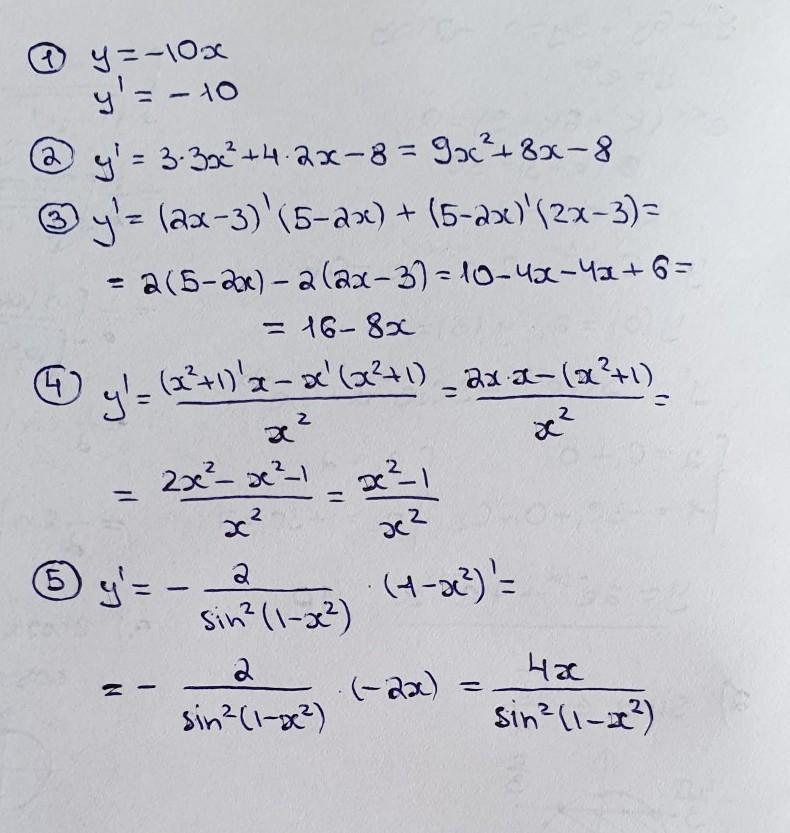 ① y = -10x
y' = -10
② y' = 3·3x² + 4·2x - 8 = 9x² + 8x - 8
③ y' = (2x-3)'(5-2x) + (5-2x)'(2x-3) =
= 2(5-2x) - 2(2x-3) = 10-4x-4x+6 =
= 16-8x
④ y' = ((x²+1)'x - x'(x²+1))/x² = (2x·x - (x²+1))/x² =
= (2x² - x² - 1)/x² = (x²-1)/x²
⑤ y' = - 2/(sin²(1-x²)) · (1-x²)' =
= - 2/(sin²(1-x²)) · (-2x) = 4x/(sin²(1-x²))